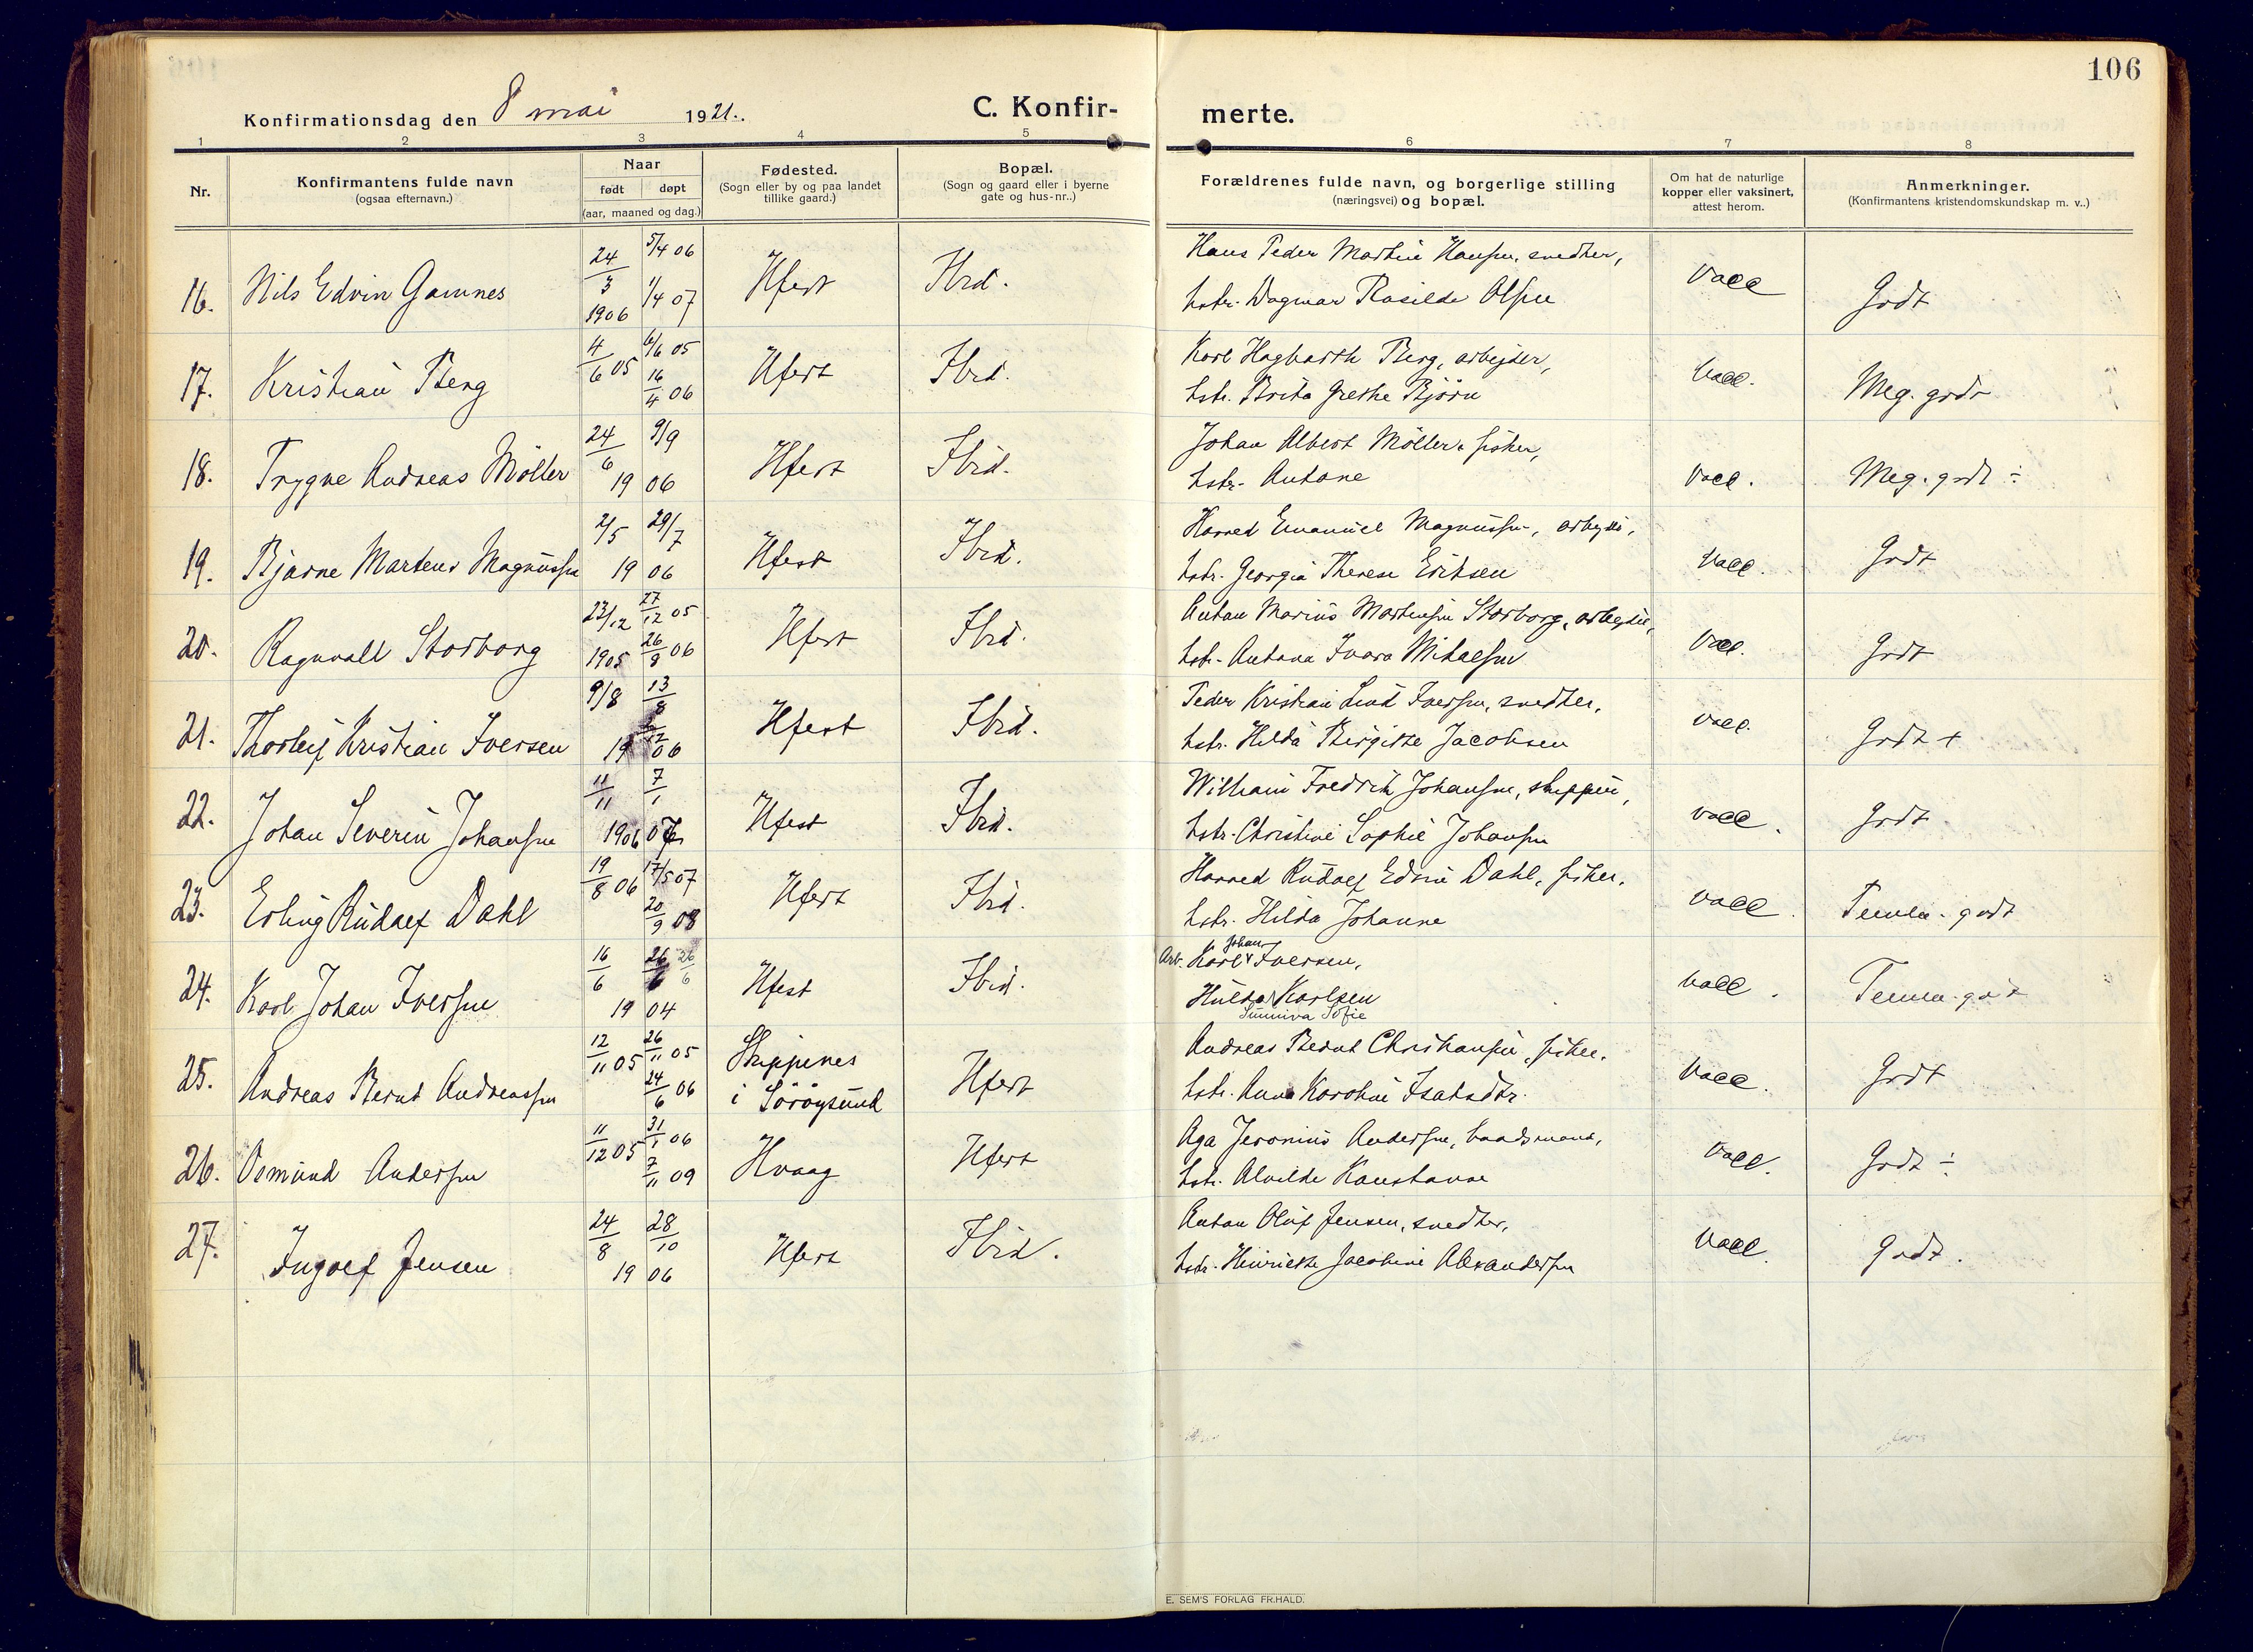 106
Konfirmationsdag den 8 mai 1921.
C. Konfir-
merte.
1 2 3 4 5 6 7 8
Nr.
Konfirmantens fulde navn
(ogsaa efternavn.)
Naar
født døpt
(aar, maaned og dag.)
Fødested.
(Sogn eller by og paa landet
tillike gaard.)
Bopæl.
(Sogn og gaard eller i byerne
gate og hus-nr..)
Forældrenes fulde navn, og borgerlige stilling
(næringsvei) og bopæl.
Om hat de naturlige
kopper eller vaksinert,
attest herom.
Anmerkninger.
(Konfirmantens kristendomskundskap m. v..)
16. Nils Edvin Gamnes 24/3 1906 5/4 06 1/4 07 Hfest Ibid. Hans Peder Martin Hansen, snedker,
hstr. Dagmar Rosilde Olsen vacc Godt
17. Kristian Berg 4/6 05 6/6 05 16/4 06 Hfest Ibid. Karl Hagbarth Berg, arbejder,
hstr. Brita Grethe Bjørn vacc. Meg. godt
18. Trygve Andreas Möller 24/6 9/9 1906 Hfest Ibid. Johan Albert Möller, fisker,
hstr. Antone vacc. Meg. godt ÷
19. Bjarne Martens Magnussen 2/5 29/7 1906 Hfest Ibid. Harred Emanuel Magnussen, arbejder,
hstr. Georgia Therese Eriksen vacc. Godt
20. Ragnvald Storborg 23/12 1905 27/12 05 26/8 06 Hfest Ibid. Anton Marius Martensen Storborg, arbejder,
hstr. Antona Ivara Mikalsen vacc. Godt
21. Thorleif Kristian Iversen 9/8 13/8 1906 Hfest Ibid. Peder Kristian Lind Iversen, snedker,
hstr. Hilda Birgitte Jacobsen vacc. Godt +
22. Johan Severin Johansen 11/11 1906 7/1 07 Hfest Ibid. William Fredrik Johansen, skipper,
hstr. Christine Sophie Johansen vacc. Godt
23. Erling Rudolf Dahl 19/8 06 17/5 07 20/9 08 Hfest Ibid. Harred Rudolf Edvin Dahl, fisker,
hstr. Hilda Johanne vacc. Temm. godt
24. Karl Johan Iversen 16/6 26/6 26/6 1904 Hfest Ibid. Arb. Karl Johan Iversen,
Hulda Karlsen
Sunniva Sofie vacc. Temm. godt
25. Andreas Bernt Andreassen 12/11 05 26/11 05 24/6 06 Skippernes
i Sörøysund Hfest Andreas Bernt Christiansen, fisker,
hstr. Anna Karoline Isaksdtr. vacc. Godt
26. Osmund Andersen 11/12 05 31/1 06 7/11 09 Hvaag Hfest Aga Jeronius Andersen, baadsmand,
hstr. Alvilde Konstanse vacc. Godt ÷
27. Ingolf Jensen 24/8 28/10 1906 Hfest Ibid. Anton Oluf Jensen, snedker,
hstr. Henriette Jacobine Alexandersen vacc. Godt.
E. SEM'S FORLAG FR.HALD.